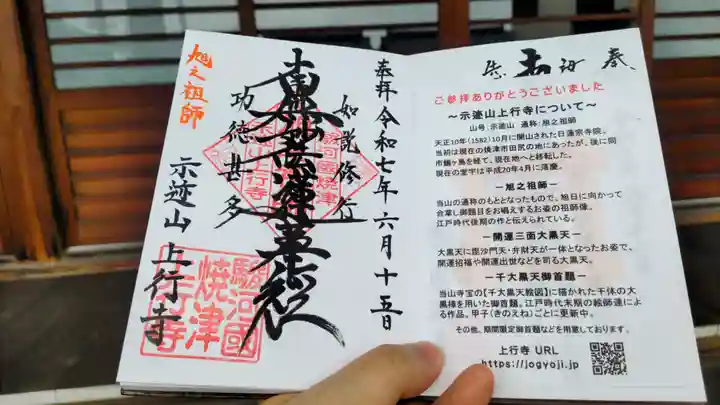 奉拝 令和七年 六月十五日
如説修行
南無妙法蓮華経
功徳甚多
旭之祖師
示迹山 上行寺
駿河國
焼津
上行寺
駿河國焼津
上行寺
ご参拝ありがとうございました
～示迹山上行寺について～
山号：示迹山 通称：旭之祖師
天正10年(1582)10月に開山された日蓮宗寺院。
当初は現在の焼津市田尻の地にあったが、後に同
市鰯ヶ島を経て、現在地へと移転した。
現在の堂宇は平成20年4月に落慶。
－旭之祖師－
当山の通称のもととなったもので、旭日に向かって
合掌し御題目をお唱えするお姿の祖師像。
江戸時代後期の作と伝えられている。
－開運三面大黒天－
大黒天に毘沙門天・弁財天が一体となったお姿で、
開運招福や開運出世などを司る大黒天。
－千大黒天御首題－
当山寺宝の【千大黒天絵図】に描かれた千体の大
黒様を用いた御首題。江戸時代末期の絵師達によ
る作品。甲子(きのえね)ごとに更新中。
その他、期間限定御首題なども用意しております。
上行寺 URL
https://jogyoji.jp/